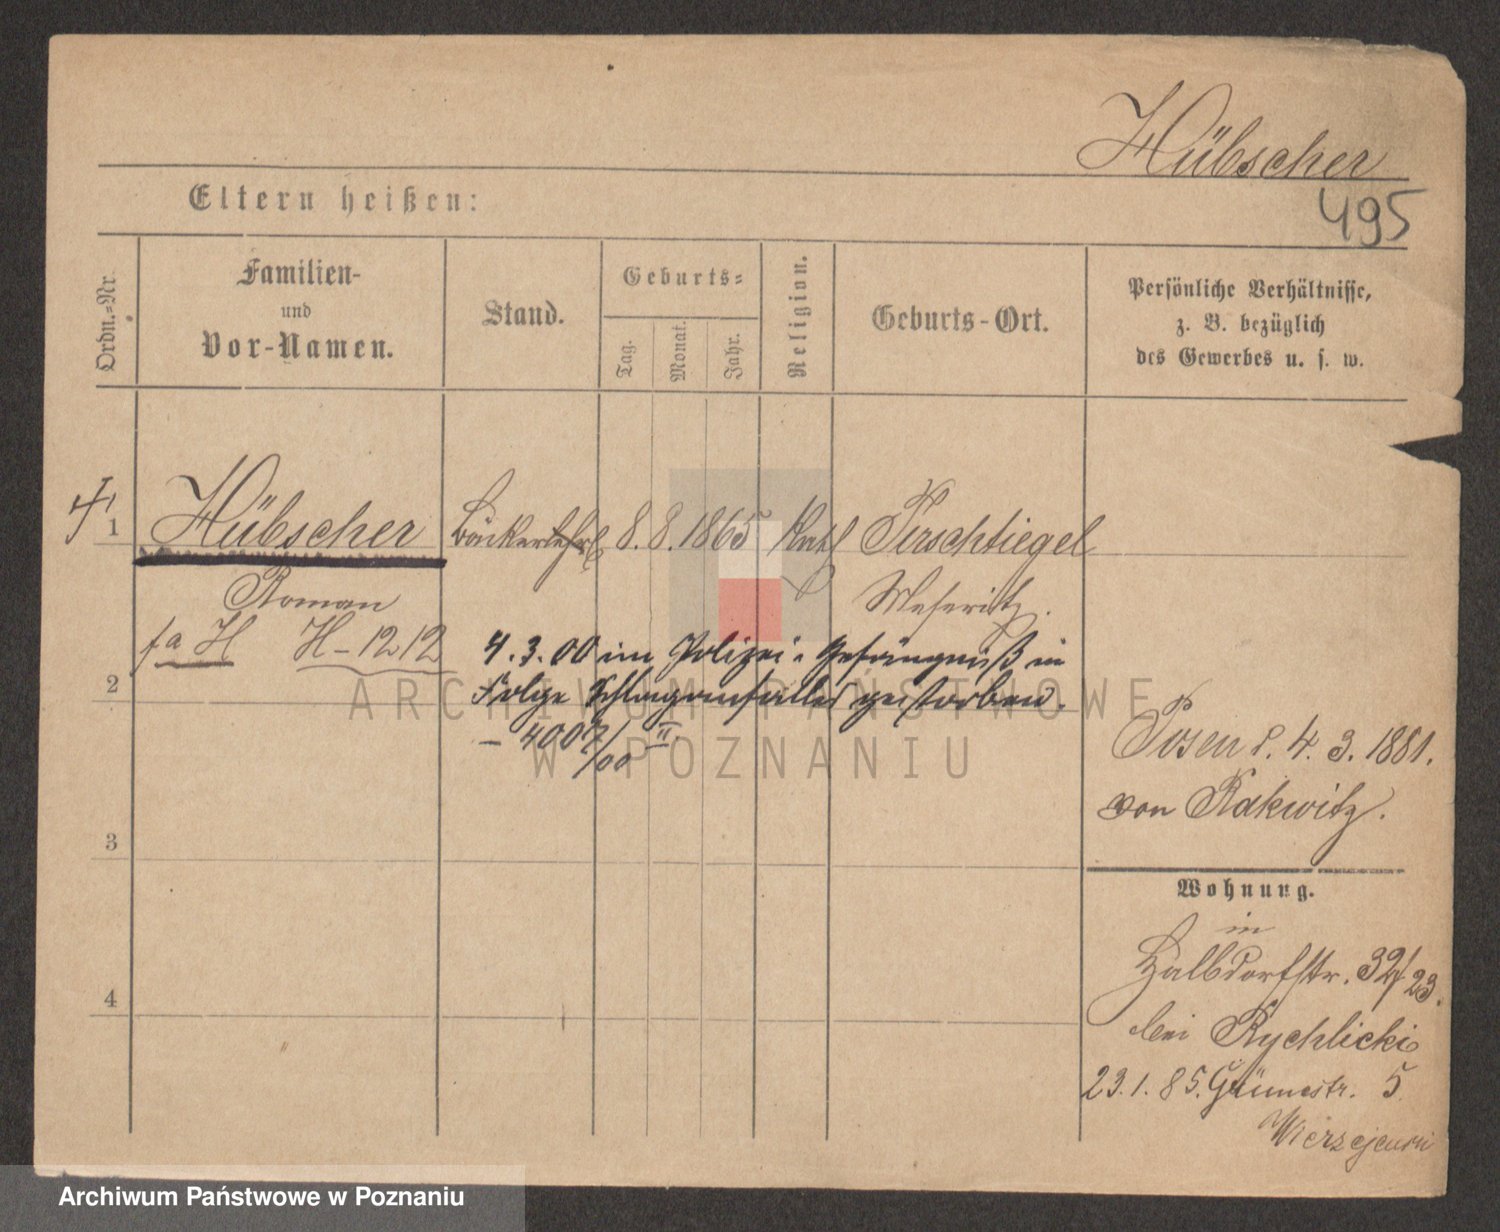 Hübscher
495
Eltern heißen:
Ordn.=Nr.
Familien-
und
Vor-Namen.
Stand.
Geburts=
Tag.
Monat.
Jahr.
Religion.
Geburts-Ort.
Persönliche Verhältnisse,
z. B. bezüglich
des Gewerbes u. s. w.
1 Hübscher Bäckerlehrl 8. 8. 1865 Kath Tirschtiegel
Roman Meseritz.
fa H H-1212
4.3.00 im Polizei-Gefängniß in
2
Folge Schlaganfalles gestorben.
- 4007/00 II
Posen d. 4. 3. 1881.
von Rakwitz.
3
Wohnung.
in
Halbdorfstr. 32/23.
4
bei Rychlicki
23.1.85. Grünestr. 5
ARCHIWUM PAŃSTWOWE
W POZNANIU
Archiwum Państwowe w Poznaniu